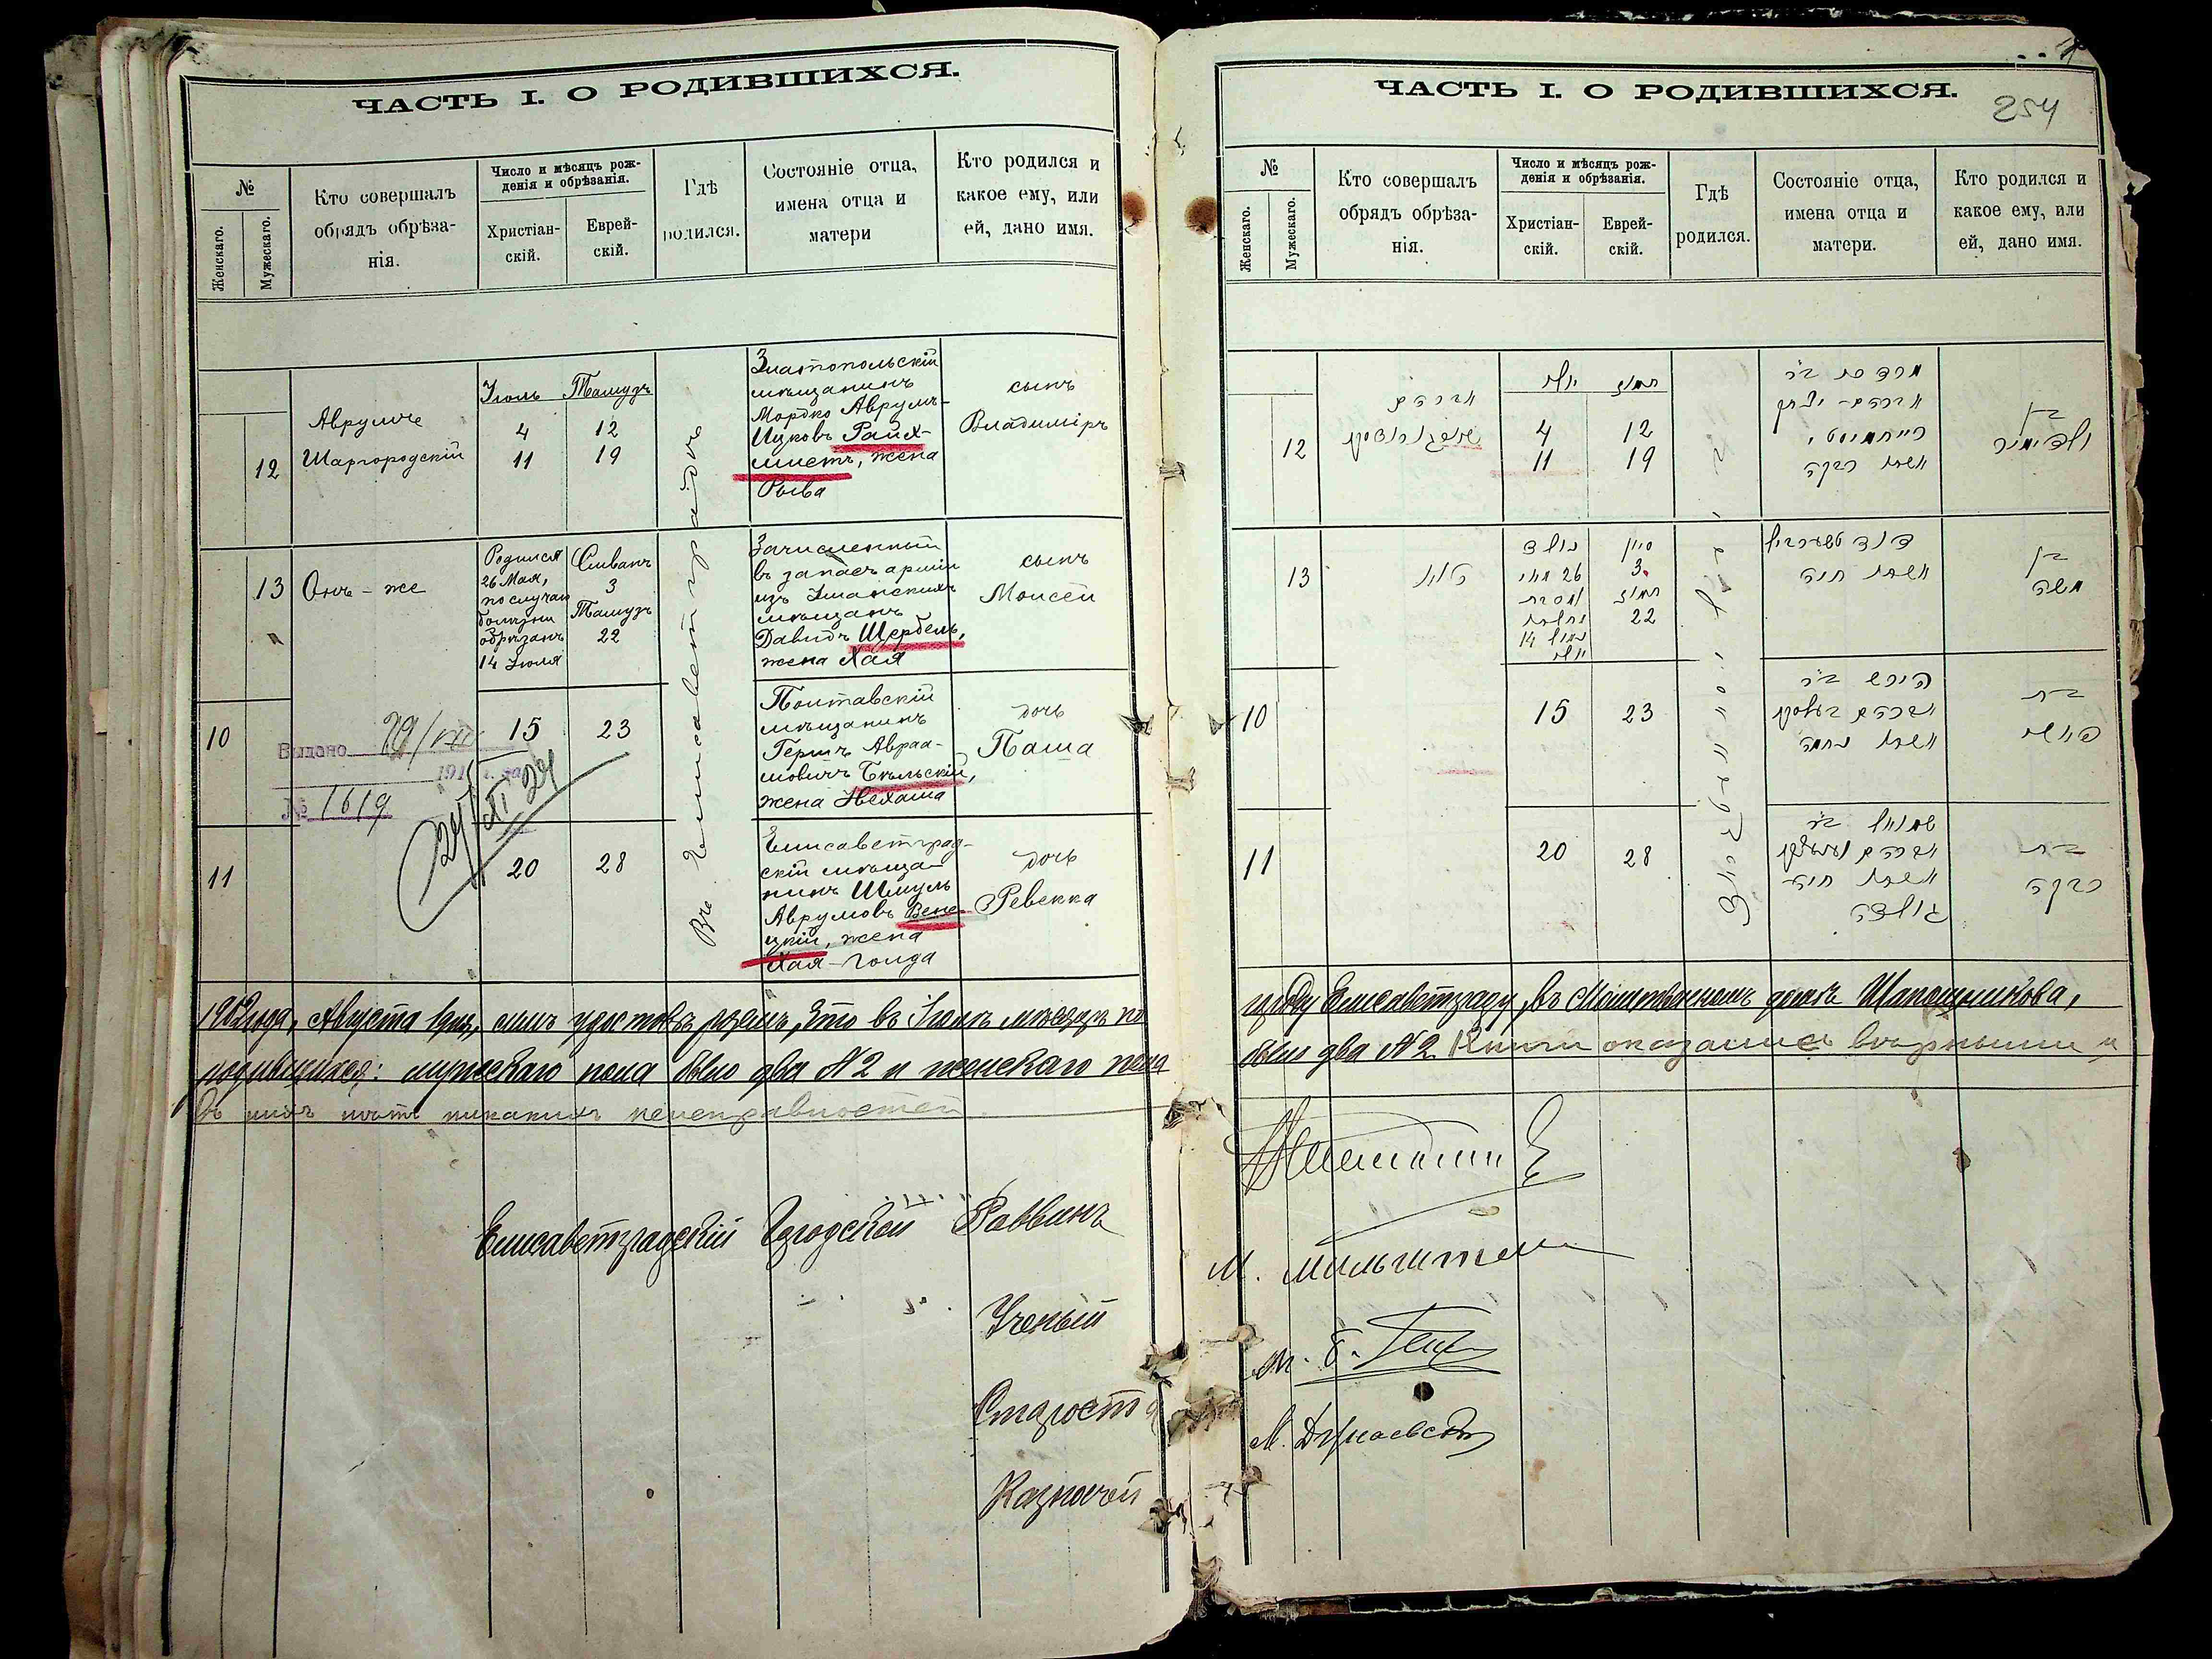 ЧАСТЬ I. О РОДИВШИХСЯ.
№
Женскаго.
Мужескаго.
Кто совершалъ
обрядъ обрѣза-
нія.
Число и мѣсяцъ рож-
денія и обрѣзанія.
Христіан-
скій.
Еврей-
скій.
Гдѣ
родился.
Состояніе отца,
имена отца и
матери
Кто родился и
какое ему, или
ей, дано имя.
12
Аврумче
Шаргородскій
Іюль
4
11
Тамузъ
12
19
Въ Елисаветградѣ
Златопольскій
мѣщанинъ
Мордко Аврумъ-
Ицковъ Райх-
штетъ, жена
Рыва
сынъ
Владиміръ
13
Онъ-же
Родился
26 Мая,
по случаю
болѣзни
обрѣзанъ
14 Іюля
Сиванъ
3
Тамузъ
22
Зачисленный
въ запасъ арміи
изъ Уманскихъ
мѣщанъ
Давидъ Щербель,
жена Хая
сынъ
Моисей
10
Выдано
№ 1619
15
23
Полтавскій
мѣщанинъ
Гершъ Авраа-
мовичъ Бѣльскій,
жена
дочь
Паша
11
20
28
Елисаветград-
скій мѣща-
нинъ Шмуль
Аврумовъ Вене-
цкій, жена
Хая-Голда
дочь
Ревекка
1902 года, Августа 1 дня, симъ удостовѣряемъ, что въ Іюлѣ мѣсяцѣ по
родившихся: мужескаго пола было два № 2 и женскаго пола
въ нихъ нѣтъ никакихъ неисправностей.
Елисаветградскій Городской Раввинъ
Ученый
Староста
Казначей
ЧАСТЬ I. О РОДИВШИХСЯ.
254
№
Женскаго.
Мужескаго.
Кто совершалъ
обрядъ обрѣза-
нія.
Число и мѣсяцъ рож-
денія и обрѣзанія.
Христіан-
скій.
Еврей-
скій.
Гдѣ
родился.
Состояніе отца,
имена отца и
матери.
Кто родился и
какое ему, или
ей, дано имя.
12
אברהם
יולי
4
11
תמוז
12
19
אשתו רבקה
בן
וולאדימיר
13
נולד
26 מאי
14
יולי
סיון
3
תמוז
22
אשתו חיה
בן
משה
10
15
23
הירש
בת
פאשי
11
20
28
שמואל
אשתו חיה
גולדה
בת
רבקה
городу Елисаветграду, въ Молитвенномъ домѣ Шапошникова,
было два № 2. Книги оказались вѣрными и
М. Мильштейн